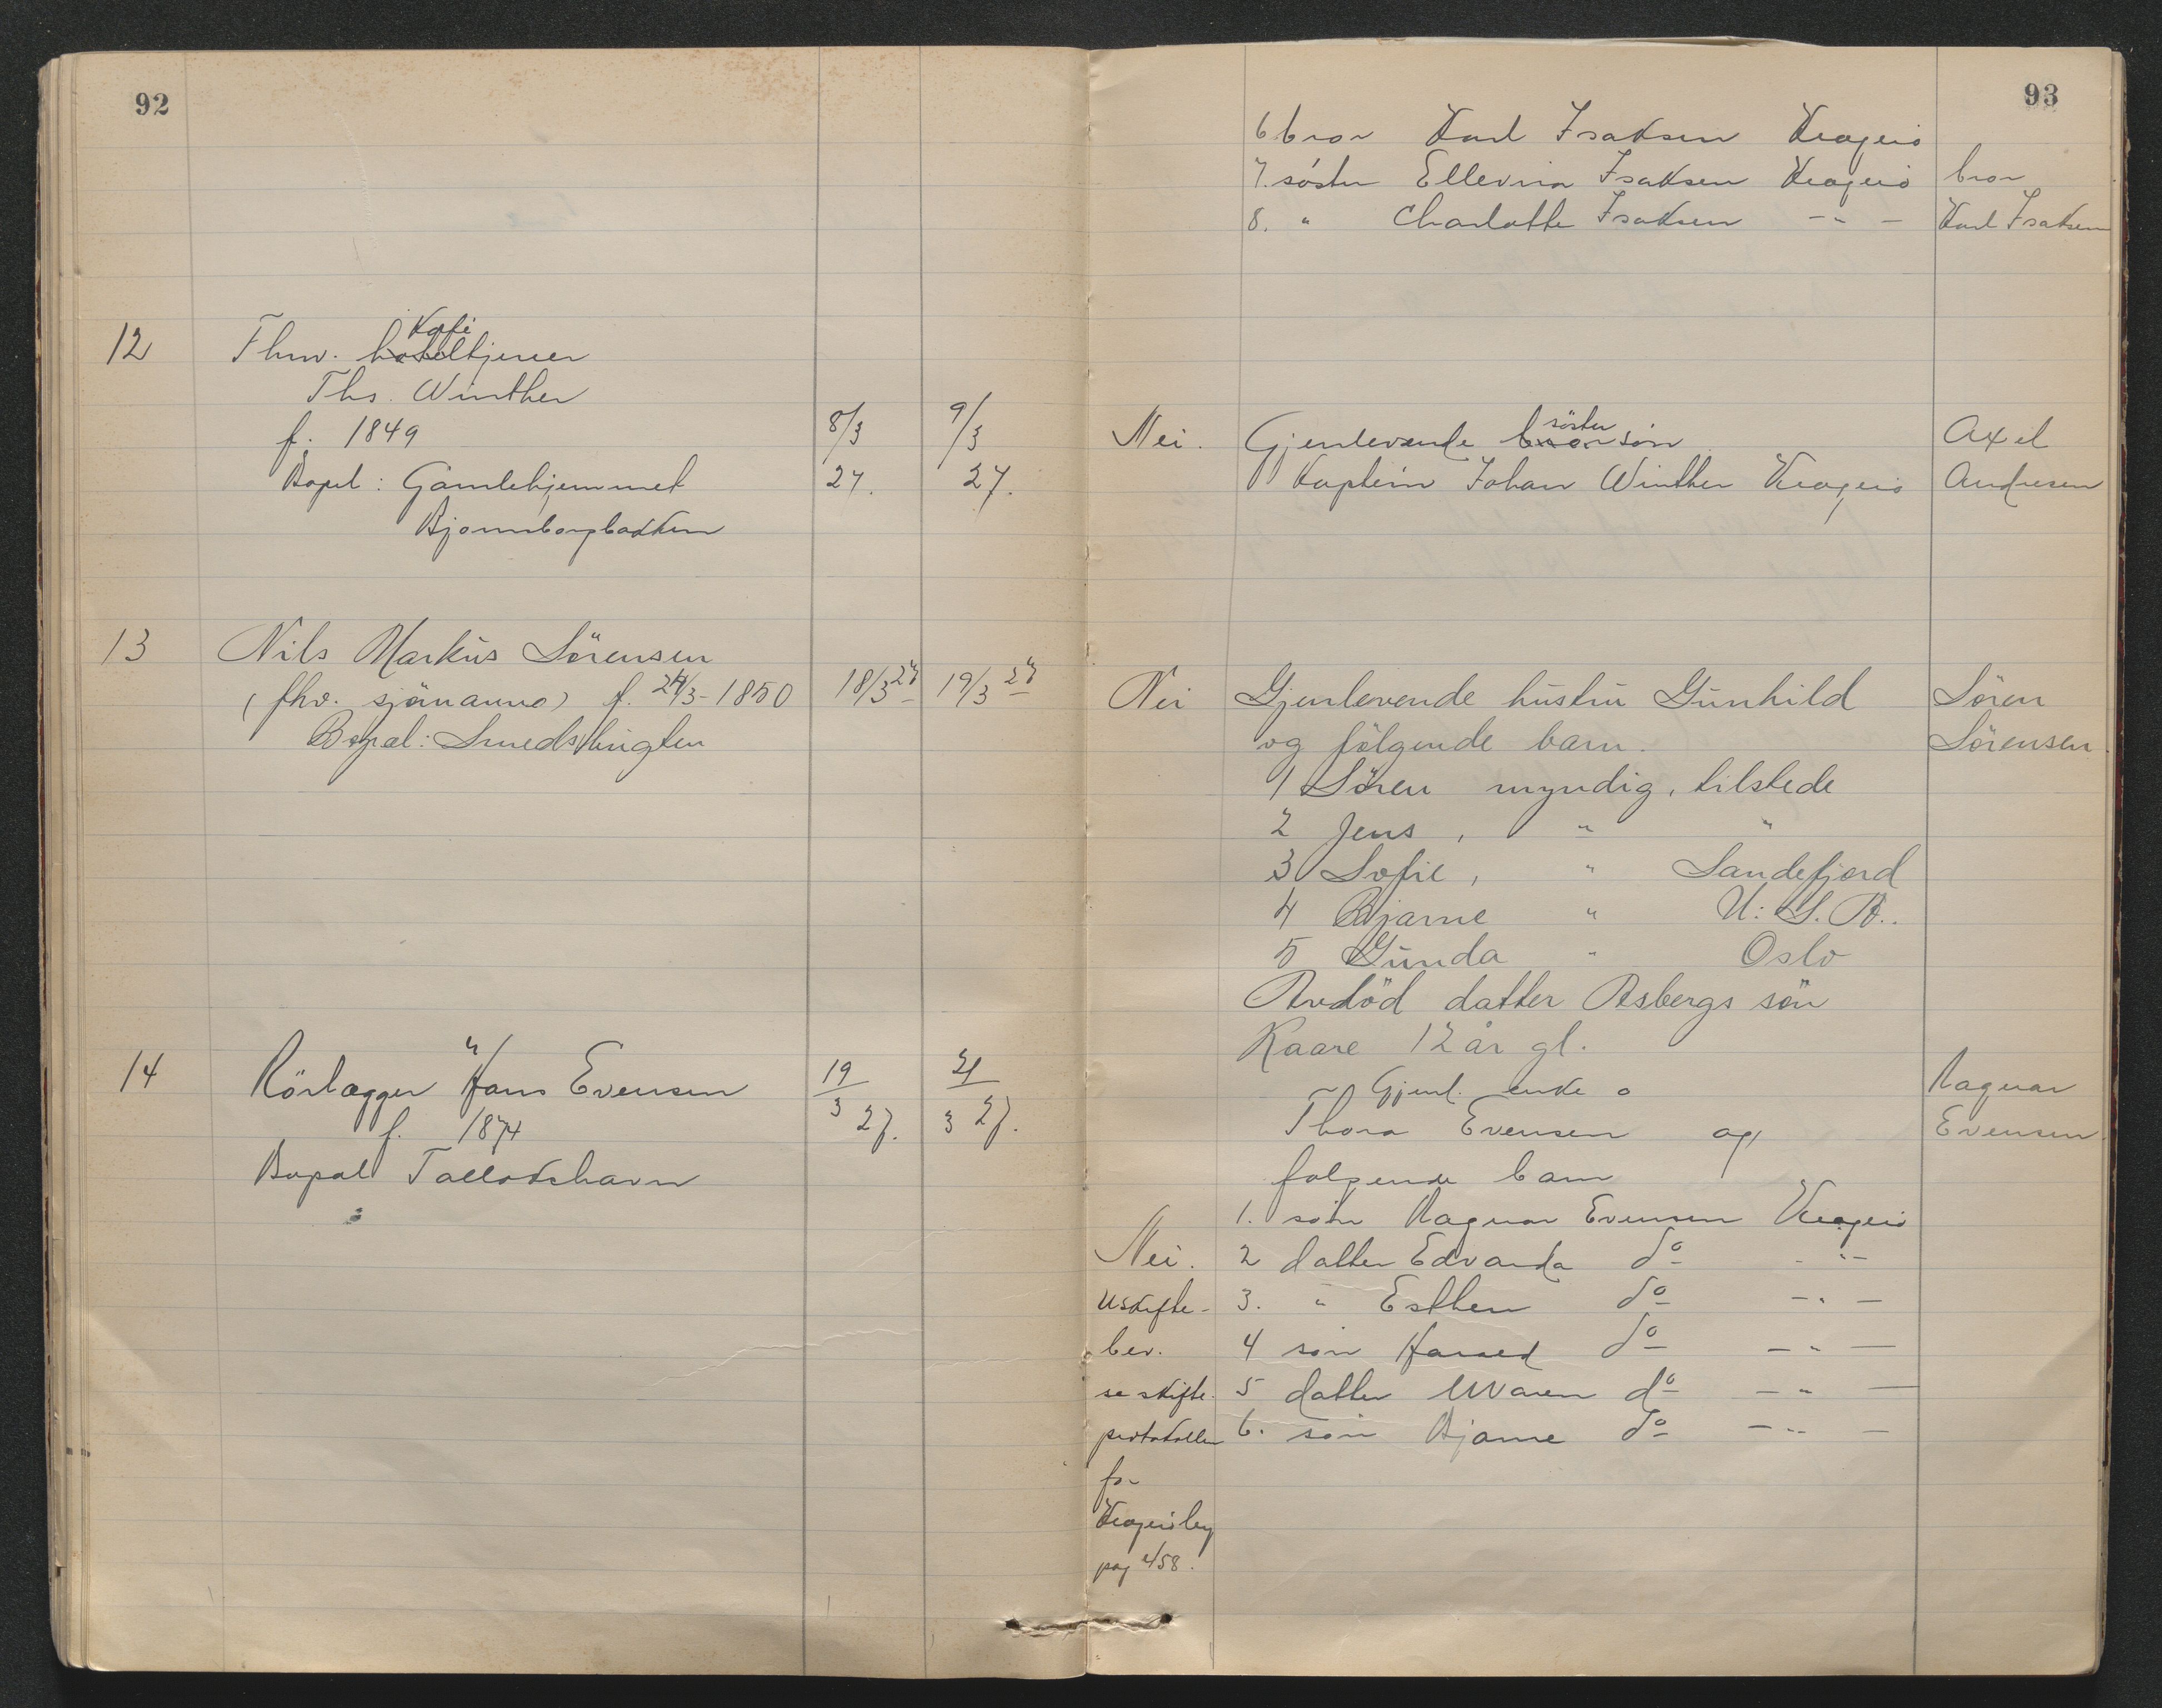 92
12
Fhv. hotel Kafe tjener
Ths. Winther
f. 1849
8/3
9/3
Bopel: Gamlehjemmet
27.
27.
Bjørnsborgbakken
13
Nils Markus Sörensen
(fhv. sjömann) f. 24/3-1850
18/3 27
19/3 27
Bopæl: Smedsbugten
14
Rörlægger Hans Evensen
19/3 27.
21/3 27.
f. 1874
Bopæl Tallakshavn
93
6 bror Karl Isaksen Kragerø
7. søster Ellevina Isaksen Kragerø
bror
8. " Charlotte Isaksen - " -
Karl Isaksen
Nei.
Gjenlevende bror söster sön
Axel
Kaptein Johan Winther Kragerø
Andresen
Nei
Gjenlevende hustru Gunhild
Sören
og fölgende barn.
Sörensen.
1 Sören myndig, tilstede
2 Jens, " "
3 Sofie, " Sandefjord
4 Bjarne " U.S.A.
5 Gunda " Oslo
Avdöd datter Asbergs sön
Kaare 12 år gl.
Gjenl. enke
Ragnar
Thora Evensen og
Evensen.
følgende barn
1. søn Ragnar Evensen Kragerø
Nei. 2 datter Edvarda do - " -
Uskifte- 3. " Esther do - " -
bev. 4 søn Harald do - " -
se skifte- 5 datter Maren do - " -
protokollen 6. søn Bjarne do - " -
for
Kragerø by
pag 458.